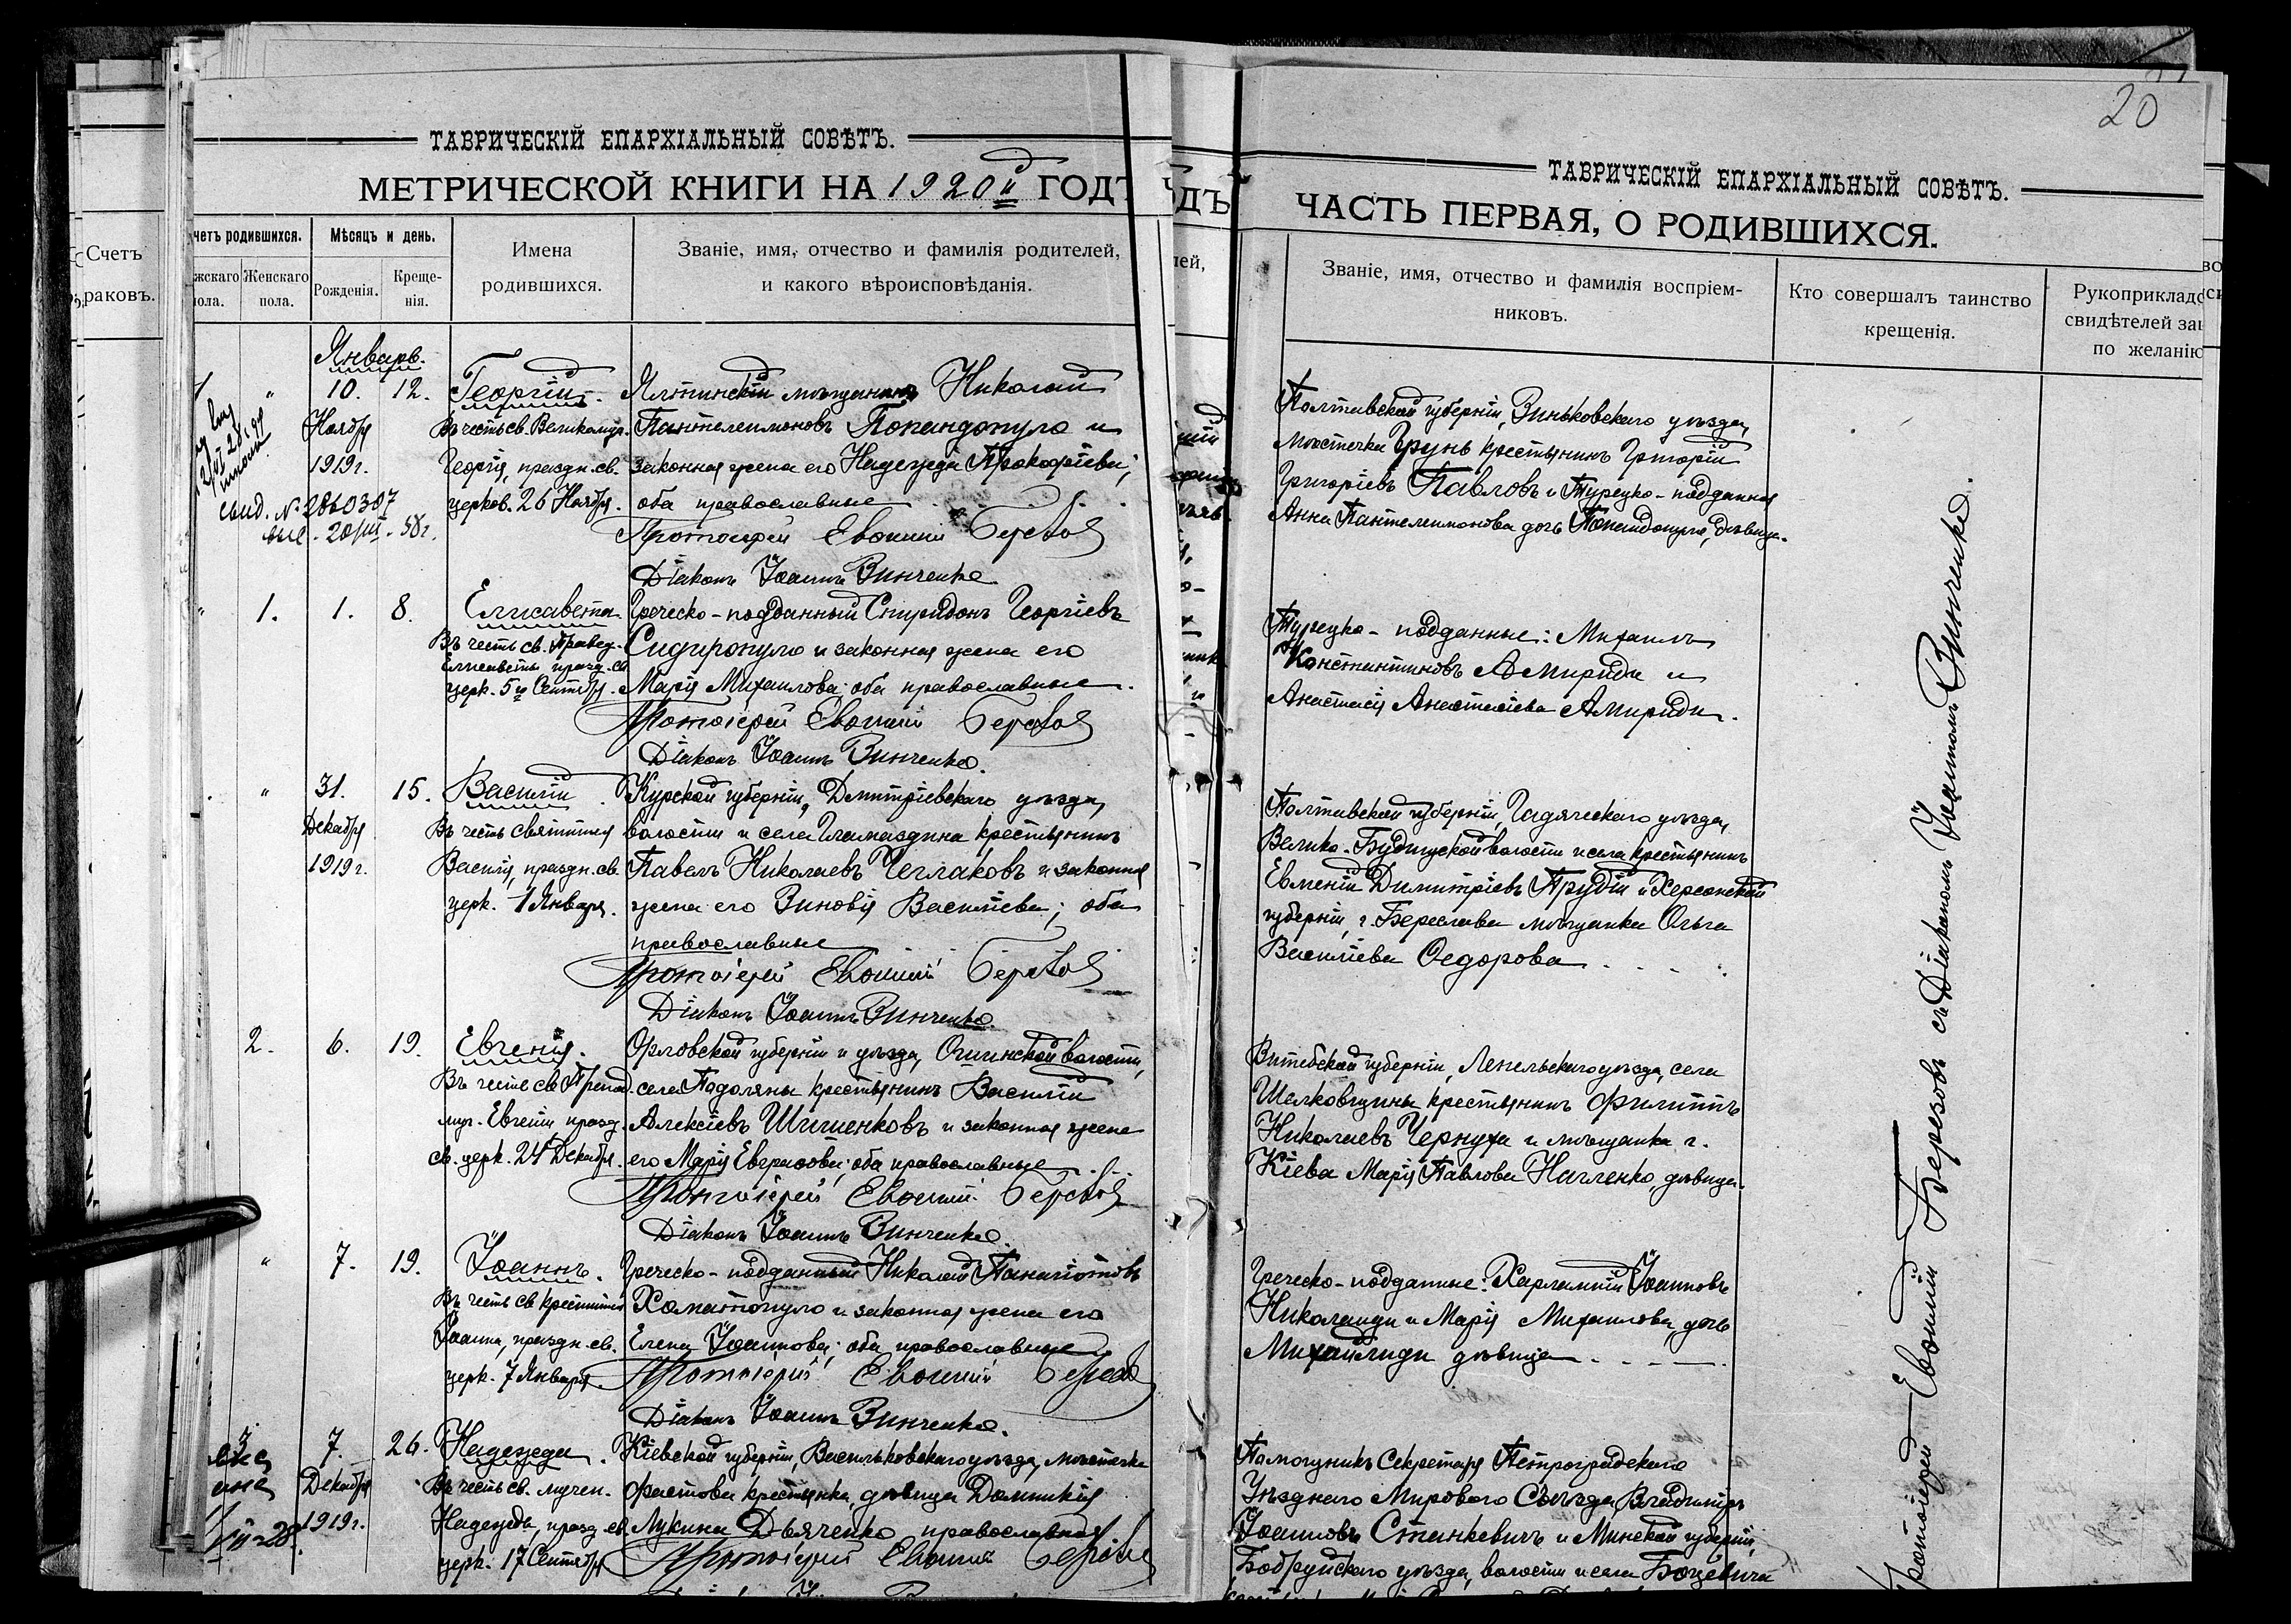 ТАВРИЧЕСКІЙ ЕПАРХІАЛЬНЫЙ СОВѢТЪ.
МЕТРИЧЕСКОЙ КНИГИ НА 1920й ГОДЪ
Счетъ
раковъ.
четъ родившихся.
Мѣсяцъ и день.
Имена
родившихся.
Званіе, имя, отчество и фамилія родителей,
и какого вѣроисповѣданія.
жскаго
пола.
Женскаго
пола.
Рожденія.
Креще-
нія.
Январь.
" 10. 12. Георгій. Ялтинскій мѣщанинъ Николай
Ноября Въ честь св. Великомуч. Пантелеимоновъ Попандопуло и
1919 г. Георгія, праздн. св. законная жена его Надежда Прокофіева;
церков. 26 Ноября. оба православные
свид. № 2860307
20/III - 58 г.
Протоіерей Евѳимій Березовъ
Діаконъ Іоаннъ Винченко
1. 1. 8. Елисавета. Греческо-подданный Спиридонъ Георгіевъ
Въ честь св. Правед. Сидиропуло и законная жена его
Елисаветы празд. св.
церк. 5го Сентября. Марія Михаилова; оба православные.
Протоіерей Евѳимій Березовъ
Діаконъ Іоаннъ Винченко.
" 31. 15. Василій. Курской губерніи, Дмитріевскаго уѣзда,
Декабря Въ честь святителя волости и села Гламаздина крестьянинъ
1919 г. Василія, праздн. св. Павелъ Николаевъ Чеглаковъ и законная
церк. 1 Января. жена его Зиновія Василіева; оба
православные
Протоіерей Евѳимій Березовъ
Діаконъ Іоаннъ Винченко.
2. 6. 19. Евгенія. Орловской губерніи и уѣзда, волости,
Въ честь св. Препод. села Подоляны крестьянинъ Василій
муч. Евгеніи празд. Алексіевъ Шишенковъ и законная жена
св. церк. 24 Декабря. его Марія Евграфова; оба православные
Протоіерей Евѳимій Березовъ
Діаконъ Іоаннъ Винченко.
" 7. 19. Іоаннъ. Греческо-подданный Николай Панагіотовъ
Въ честь св. крестителя Хаматопуло и законная жена его
Іоанна, праздн. св. Елена Іоаннова; оба православные
церк. 7 Января. Протоіерей Евѳимій Березовъ
Діаконъ Іоаннъ Винченко.
3 7. 26. Надежда. Кіевской губерніи, Васильковскаго уѣзда, мѣстечка
Декабря Въ честь св. мучен. Фастова крестьянка, дѣвица Домникія
1919 г. Надежды, празд. св. Лукина Дьяченко православная
церк. 17 Сентября Протоіерей Евѳимій Березовъ
20
ТАВРИЧЕСКІЙ ЕПАРХІАЛЬНЫЙ СОВѢТЪ.
ЧАСТЬ ПЕРВАЯ, О РОДИВШИХСЯ.
Званіе, имя, отчество и фамилія воспріем-
никовъ.
Кто совершалъ таинство
крещенія.
Рукоприкладс
свидѣтелей за
по желанію
Полтавской губерніи, Зиньковскаго уѣзда,
мѣстечка Грунь крестьянинъ Григорій
Григоріевъ Павловъ и Турецко-подданная
Анна Пантелеимонова дочь Попандопуло, дѣвица.
Турецко-подданные: Михаилъ
Константиновъ Амириди и
Анастасія Анастасіева Амириди.
Полтавской губерніи, Гадяческаго уѣзда,
Велико-Будищской волости и села крестьянинъ
Евменій Димитріевъ Прудій и Херсонской
губерніи, г. Берислава мѣщанка Ольга
Василіева Ѳедорова
Витебской губерніи, Лепельскаго уѣзда, села
Шелковщины крестьянинъ Филиппъ
Николаевъ Чернуха и мѣщанка г.
Кіева Марія Павлова Нагленко, дѣвица.
Греческо-подданные: Харлампій Іоанновъ
Николаиди и Марія Михаилова дочь
Михайлиди дѣвица
Помощникъ Секретаря Петроградскаго
Уѣзднаго Мирового Съѣзда Владиміръ
Іоанновъ Станкевичъ и Минской губерніи,
Бобруйскаго уѣзда, волости и села Боцевича
Протоіерей Евѳимій Березовъ съ Діакономъ Іоанномъ Винченко.